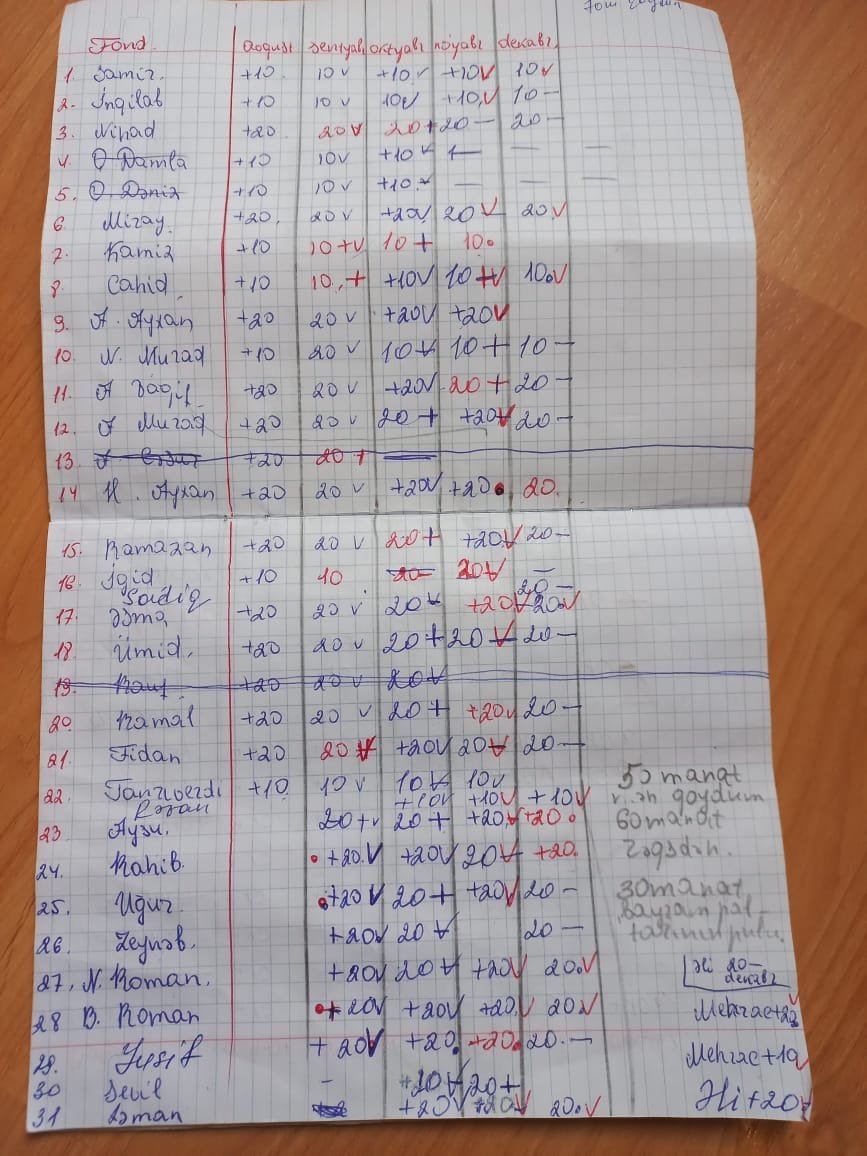 Fond. avqust sentyabr oktyabr noyabr dekabr.
1. Samir. +10. 10 v +10 v +10 v 10 v
2. İnqilab +10 10 v 10 v +10, v 10 –
3. Nihad +20 20 v 20 + 20 – 20 –
4. O Damla +10 10 v +10 v – – –
5. O. Dəniz +10 10 v +10. v – – –
6. Miray. +20. 20 v +20 v 20 v 20. v
7. Kamiz +10 10 + v 10 + 10.
8. Cahid +10 10. + +10 v 10 + v 10. v
9. A. Ayxan +20 20 v +20 v +20 v
10. N. Murad +10 20 v 10 v 10 + 10 –
11. A Vaqif +20 20 v +20 v 20 + 20 –
12. A Murad +20 20 v 20 + +20 v 20 –
13. A +20 20 + –
14 H. Ayxan +20 20 v +20 v +20. 20.
15. Ramazan +20 20 v 20 + +20. v 20 –
16. İgid +10 10 20 20 v –
Sadiq 20 –
17. Əsma +20 20 v 20 v +20 v 20. v
18. Ümid. +20 20 v 20 + 20 v 20 –
19. Rauf. +20 20 v 20 v
20. Kamal +20 20 v 20 + +20 v 20 –
21. Fidan +20 20 v +20 v 20 v 20 –
50 manat
22. Tanrıverdi +10 10 v 10 v 10 v
Rəvan +10 v +10 v +10 v qoydum
23 Aysu. 20 + v 20 + +20. v +20. 60 manat
24. Rahib. +20. v +20 v 20 v +20.
25. Uğur. +20 v 20 + +20 v 20 – 30 manat
bayram
26. Zeynəb. +20 v 20 v 20 –
27, N. Roman. +20 v 20 v +20 v 20. v Əli 20 –
dekabr
28 B. Roman + 20 v +20 v +20. v 20 v Mehrac +20
29. Yusif + 20 v +20. +20. 20. –
Mehrac +10
30 Sevil – +20 v 20 +
31 Əsman +20 v +20 v 20. v Əli +20 v